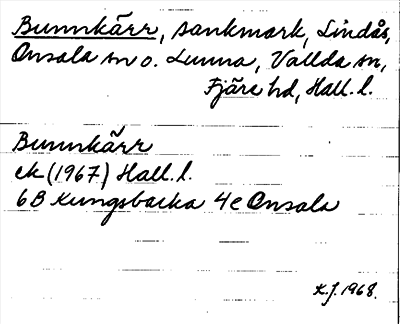 Bunnkärr, sankmark, Lindås,
Onsala sn o. Lunna, Vallda sn,
Fjäre hd, Hall. l.
Bunnkärr
ek (1967) Hall. l.
6B Kungsbacka 4e Onsala
K.J. 1968.